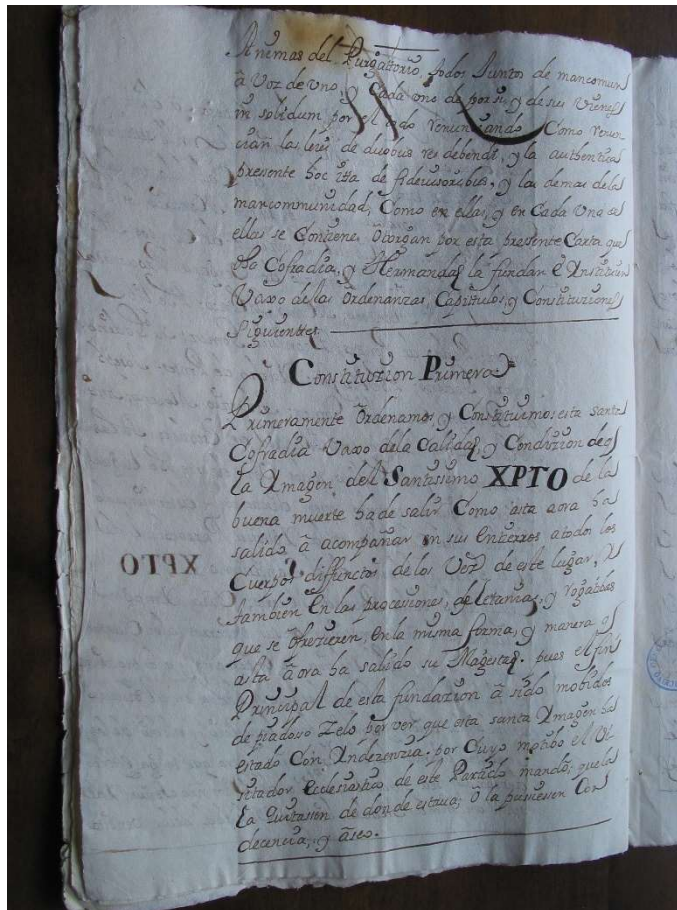 Animas del Purgattorio, todos Juntos de mancomun
â Voz de Vno, y Cada vno de por si, y de sus Vienes
in solidum por el todo renunciando Como renun
cian las leies de duobus res debendi, y la authentica
presente hoc itta de fideiusoribus, y las demas dela
mancommunidad, Como en ellas, y en Cada Vna de
ellas se Contiene, Otorgan por esta presente Carta que
dha Cofradia, y Hermandad la fundan è Instituien
Vaxo delas Ordenanzas Capitulos, y Constituziones
Siguientes.
Constituzion Primera
Primeramente Ordenamos, y Constituimos esta santa
Cofradia Vaxo dela Calidad, y Condizion de q
la Ymagen del Santissimo XPTO de la
buena muerte ha de salir Como asta aora ha
salido â acompañar en sus Entierros atodos los
Cuerpos diffunctos de los Vezs de este lugar, y
tambien En las procesiones, de Letanias, y rogatibas
que se ofrezieren, en la misma forma, y manera q
asta âora ha salido su Magestad. pues el fin
Prinzipal de esta fundazion â sido mobidos
de piadoso Zelo por ver que esta santa Ymagen ha
estado Con Yndezenzia. por Cuyo motibo el Vi
sitador Ecclesiastico de este Partido mandó, que la
La quitassen de donde estaua; ô la pusiessen Con
decencia, y âseo.
XPTO